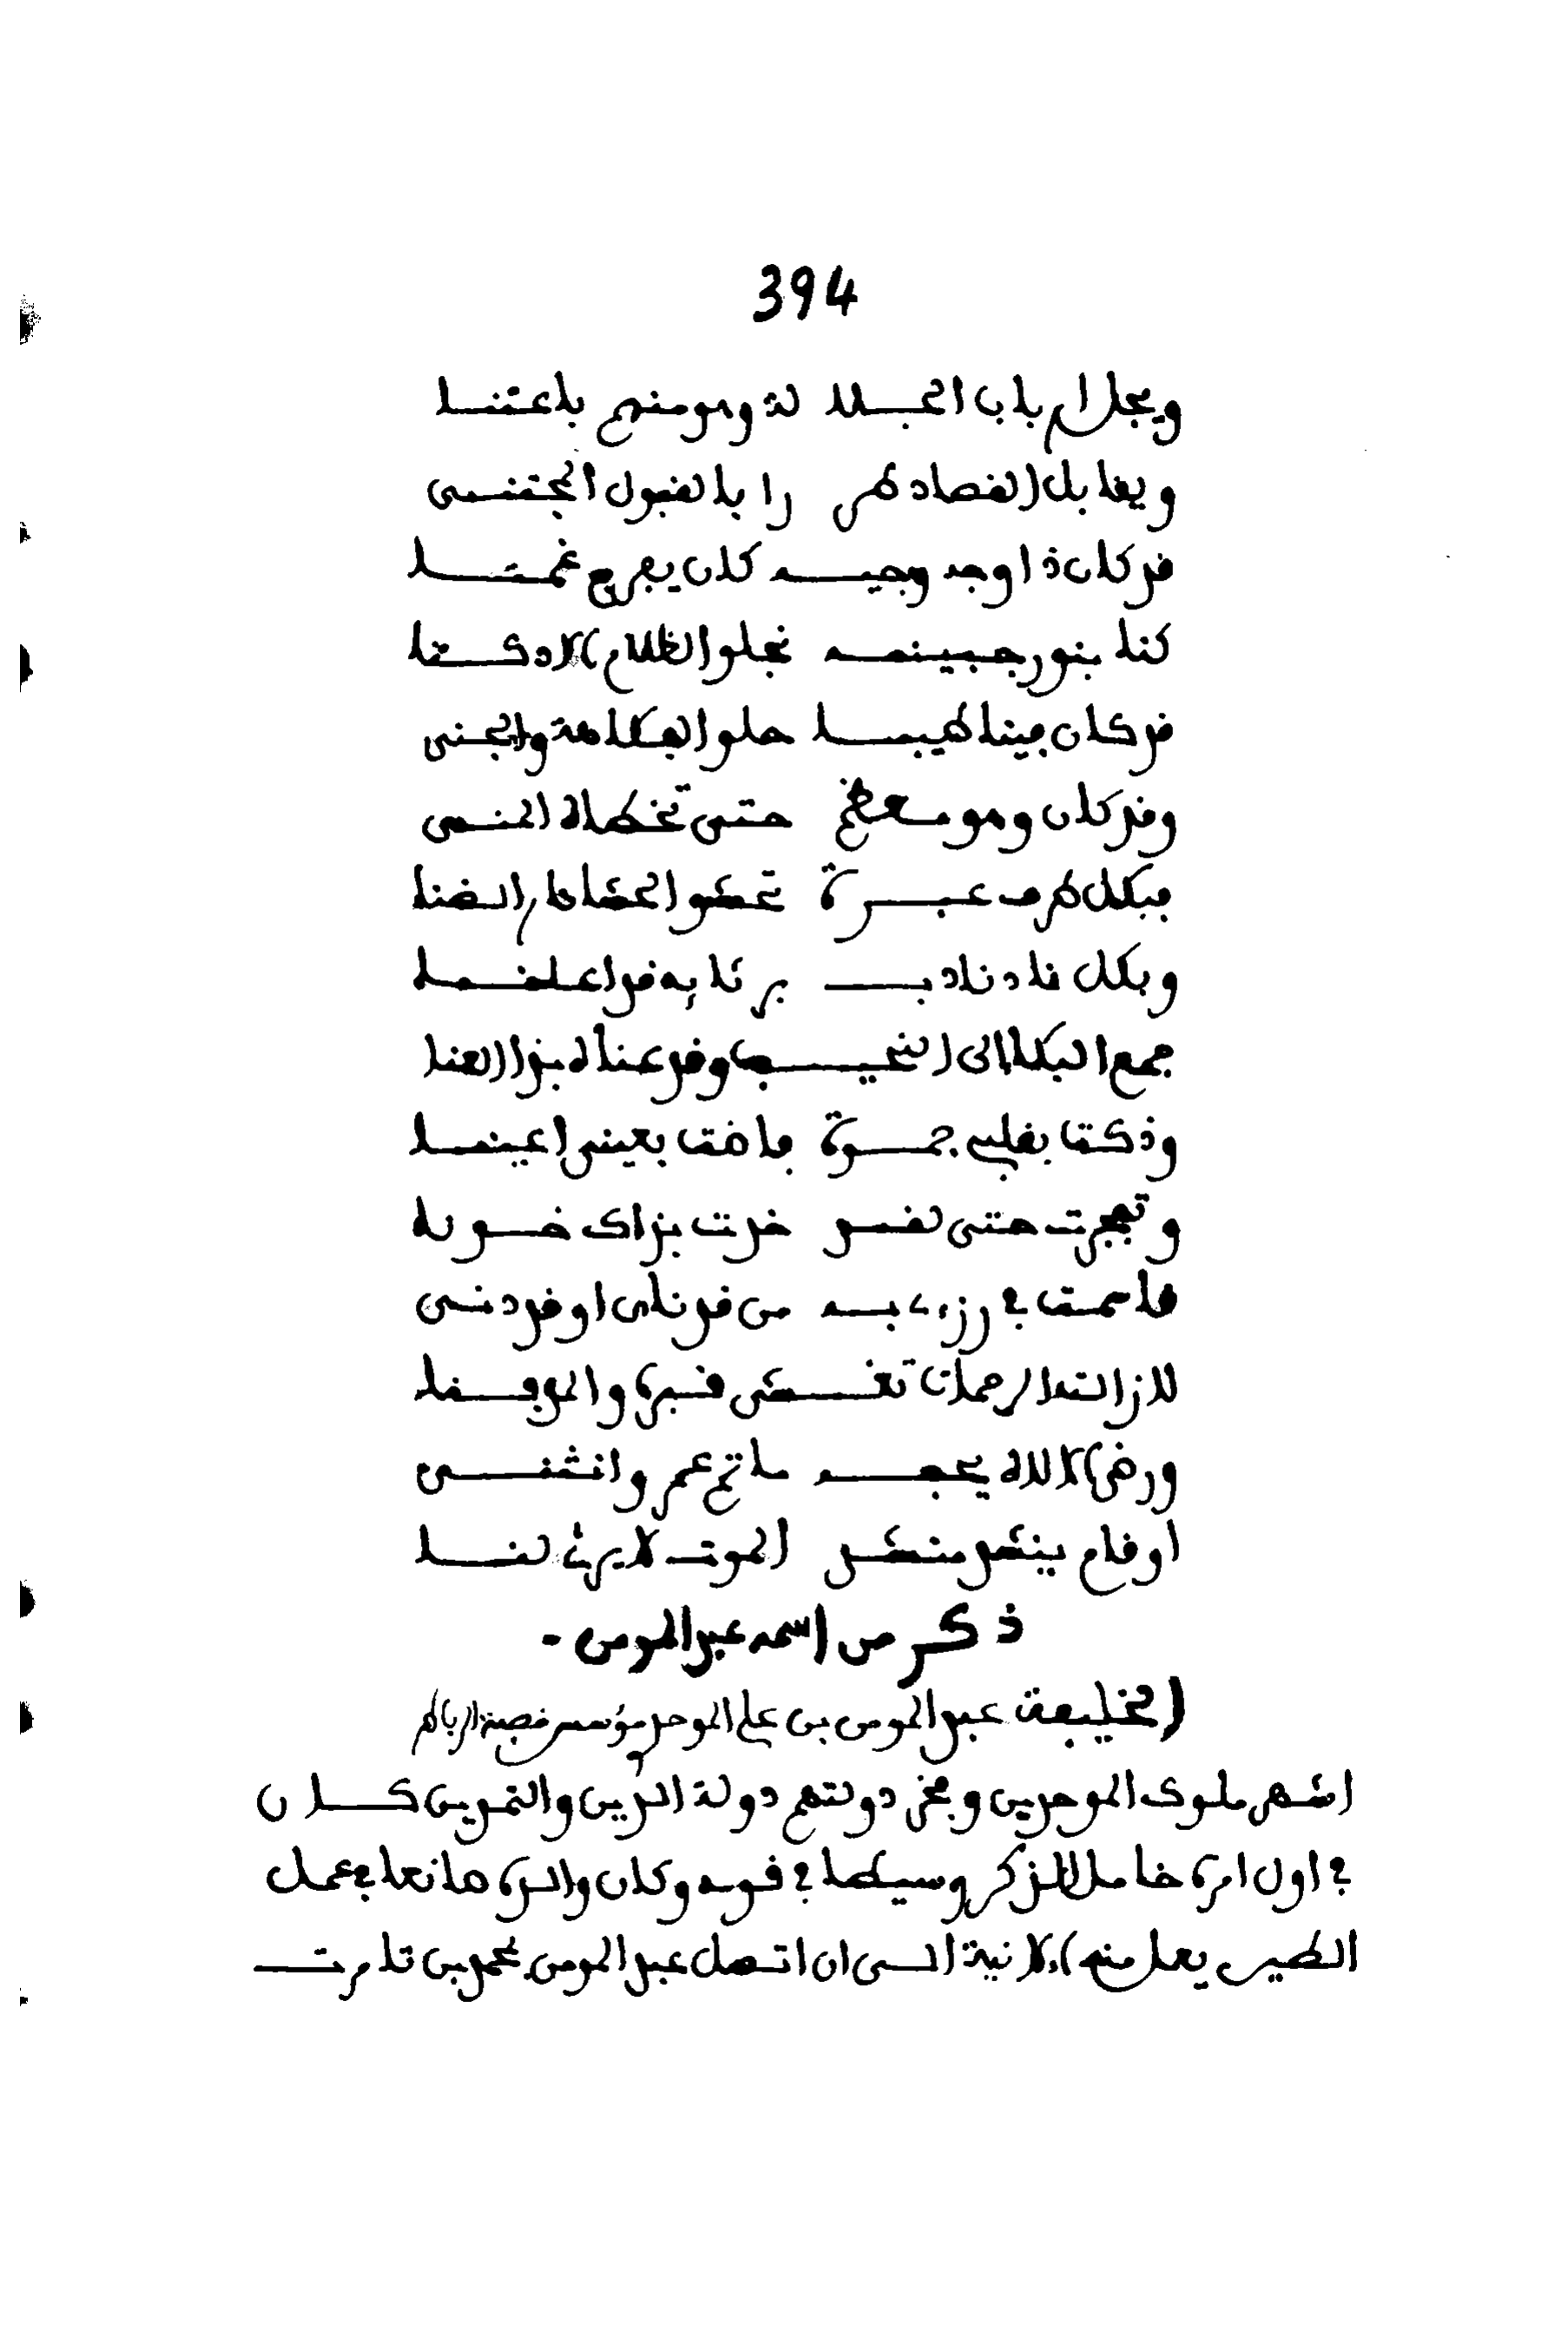 394
ويجل ارباب الجلا لة وهو منهم باعتنا
ويقابل القصاد طرا بالقبول المجتنى
قد كان ذا وجه وجيه كان يفرج غمنا
كنا بنور جبينه نجلوا الظلام الادكنا
قد كان فينا طيبا حلو الفكاهة والجنى
وقد كان وهو معظم حتى تخطاه المنى
فبكل طرف عبرة تحشو الحشا
وبكل ناد نادب برثايه قد اعلنا
جمع البكا الى النحيب وقد عناه بذا العنا
وذكت بقلبي جمرة فاضت بعيني اعينا
وتفجرت حتى لقد خدت بذاك خدونا
قاست في رزء به من قد ناى او قد دنى
لازالت الرحمات تغشى قبره والموفنا
ورضى الالاه يحفه ما تم عمر وانثنى
او قام ينشد منشد الموت لا يرثي لنا
ذكر من اسمه عبد المومن -
الخليفة عبد المومن بن علي الموحدي مؤسس قصبة الرباط
اشهر ملوك الموحدين وفخر دولتهم دولة الدين والتمدين كان
في اول امره خامل الذكر وسيطا في قومه وكان والده صانعا في عمل
الطين يعمل منه الانية الى ان اتصل عبد المومن بمحمد بن تامرت